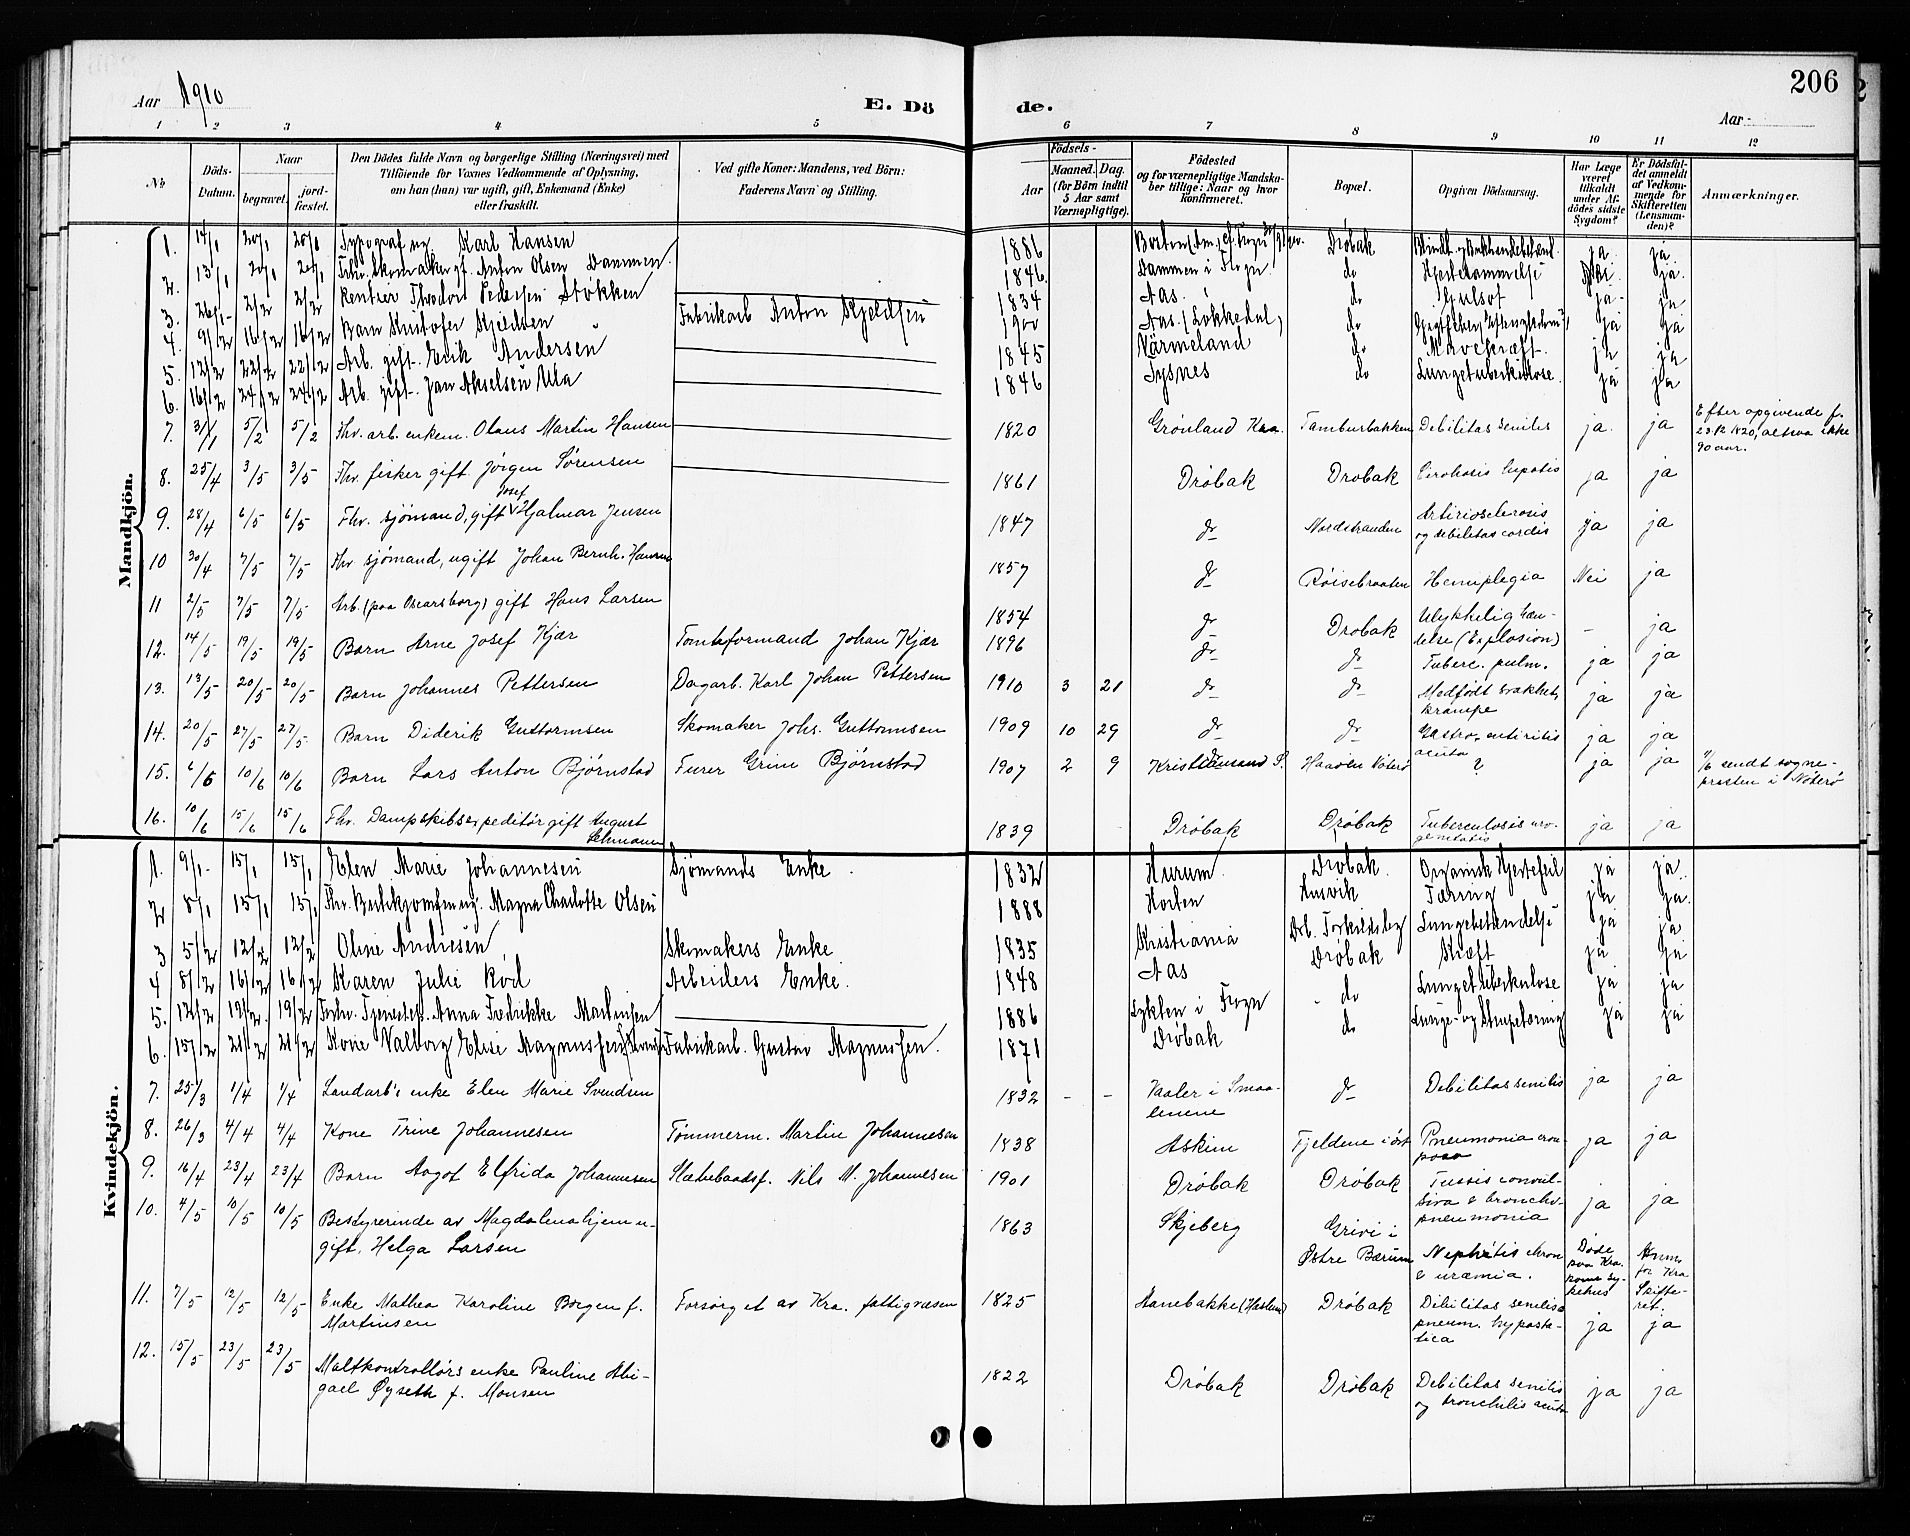 206
Aar 1910
E. Dö de.
Aar
1 2 3 4 5 6 7 8 9 10 11 12
No
Döds-Datum.
Naar
begravet.
jord-fæstet.
Den Dödes fulde Navn og borgerlige Stilling (Næringsvei) med
Tilföiende for Voxnes Vedkommende af Oplysning,
om han (hun) var ugift, gift, Enkemand (Enke)
eller fraskilt.
Ved gifte Koner: Mandens, ved Börn:
Faderens Navn og Stilling.
Födsels-
Aar
Maaned. Dag.
(for Börn indtil
5 Aar samt
Værnepligtige).
Födested
og for værnepligtige Mandska-
ber tillige: Naar og hvor
konfirmeret.
Bopæl.
Opgiven Dödsaarsag.
Har Læge
været
tilkaldt
under Af-
dödes sidste
Sygdom?
Er Dödsfal-
det anmeldt
af Vedkom-
mende for
Skifteretten
(Lensman-
den)?
Anmærkninger.
Mandkjön.
1. 14/1 20/1 20/1 Typograf ug. Karl Hansen 1886 Drøbak ja. ja.
2. 13/1 20/1 20/1 Fhv. Skomaker gt. Anton Olsen Dammen. 1846 Dammen i Frogn do Hjertelammelse ja.
3. 26/1 2/2 2/2 Rentier Theodor Pedersen Støkken 1834 Aas. do Gulsot ja ja
4. 9/2 16/2 16/2 Barn Kristofer Kjeldsen Fabrikarb Anton Kjeldsen 1900 Aas. (Løkkedal) do ja ja
5. 12/2 22/2 22/2 Arb. gift. Erik Andersen 1845 Värmeland do Mavekræft. ja ja
6. 16/2 24/2 24/2 Arb. gift. Jan Akselsen Ula 1846 Tysnes do Lungetuberkulose. ja ja
7. 31/1 5/2 5/2 Fhv. arb. enkem. Olaus Martin Hansen 1820 Grønland Kra. Tamburbakken Debilitas senilis ja. ja Efter opgivende f.
23/12 1820, altsaa ikke
90 aar.
8. 25/4 3/5 3/5 Fhv. fisker gift. Jörgen Sørensen 1861 Drøbak Drøbak Cirohosis hepatis ja ja
9. 28/4 6/5 6/5 Fhv. sjömand, gift Josef Hjalmar Jensen 1847 do Nordstranden Arteriosclerosis
og debilitas cordis ja ja
10 30/4 7/5 7/5 Fhv sjømand, ugift Johan Bernh. Hansen 1857 do Røisebraaten Hemiplegia Nei ja
11 2/5 7/5 7/5 Arb. (paa Oscarsborg) gift Hans Larsen 1854 do Drøbak Ulykkelig hæn-
delse (Explosion) - ja
12. 14/5 19/5 19/5 Barn Arne Josef Kjær Tomteformand Johan Kjær 1896 do do Tuberc. pulm. ja ja
13. 13/5 20/5 20/5 Barn Johannes Pettersen Dagarb. Karl Johan Pettersen 1910 3 21 do do Medfødt svakhet,
krampe ja ja
14. 20/5 27/5 27/5 Barn Diderik Guttormsen Skomaker Johs. Guttormsen 1909 10 29 do do Gastro-entiritis
acuta ja ja
15. 6/6 10/6 10/6 Barn Lars Anton Bjørnstad Furer Grim Bjørnstad 1907 2 9 Kristiansand S. Haaøen Nøterø ? ja ja 11/6 sendt sogne-
presten i Nøterø
16. 10/6 15/6 15/6 Fhv. Dampskibsexpeditör gift August
Lehmann 1839 Drøbak Drøbak Tuberculosis uro-
genitalis ja ja
Kvindekjön.
1. 9/1 15/1 15/1 Elen Marie Johannesen Sjømands Enke. 1832 Hurum. Drøbak. Organisk Hjertefeil ja ja.
2 8/1 15/1 15/1 Fhv. Butikjomfru ug. Magna Charlotte Olsen 1888 Horten Husvik Tæring ja ja.
3 5/2 12/2 12/2 Oline Andresen Skomakers Enke 1835 Kristiania Drb. Torkildsby Lungebetændelse ja ja
4 8/2 16/2 16/2 Karen Julie Rød Arbeiders Enke. 1848 Aas Drøbak Kræft ja ja
5. 12/2 19/2 19/2 Forhv. Tjenestep. Anna Fredrikke Martinsen 1886 Lykken i Frogn do Lungetuberkulose ja ja
6. 15/2 21/2 21/2 Kone Valborg Elise Magnussen Fabrikarb. Gustav Magnussen. 1871 Drøbak do Lunge- og Strupetæring ja ja
7. 25/3 1/4 1/4 Landarb's enke Elen Marie Svendsen 1832 - - Vaaler i Smaa-
lenene do Debilitas senilis ja ja
8. 26/3 4/4 4/4 Kone Trine Johannesen Tømmerm. Martin Johannesen 1838 Askim Fjeldene i øst Pneumonia crou-
posa ja ja
9. 16/4 23/4 23/4 Barn Aagot Elfrida Johannesen Slæbebaadsf. Nils M. Johannesen 1901 Drøbak Drøbak Tussis convul-
siva & broncho-
pneumonia ja ja
10. 4/5 10/5 10/5 Bestyrerinde av Magdalenahjem u-
gift. Helga Larsen 1863 Skjeberg Grivi i
Østre Bærum Nephritis chron
& uræmia. Døde
paa Kra.
komm sy-
kehus Anm.
for Kra
Skifte-
ret.
11. 7/5 12/5 12/5 Enke Mathea Karoline Borgen f.
Martinsen Forsørget av Kra. fattigvæsen 1825 Hanebakke (Haslum) Drøbak Debilitas senilis &
pneum. hyposta-
tica ja ja
12. 15/5 23/5 23/5 Maltkontrollørs enke Pauline Abi-
gael Øyseth f. Monsen 1822 Drøbak Drøbak Debilitas senilis
og bronchitis acuta ja ja